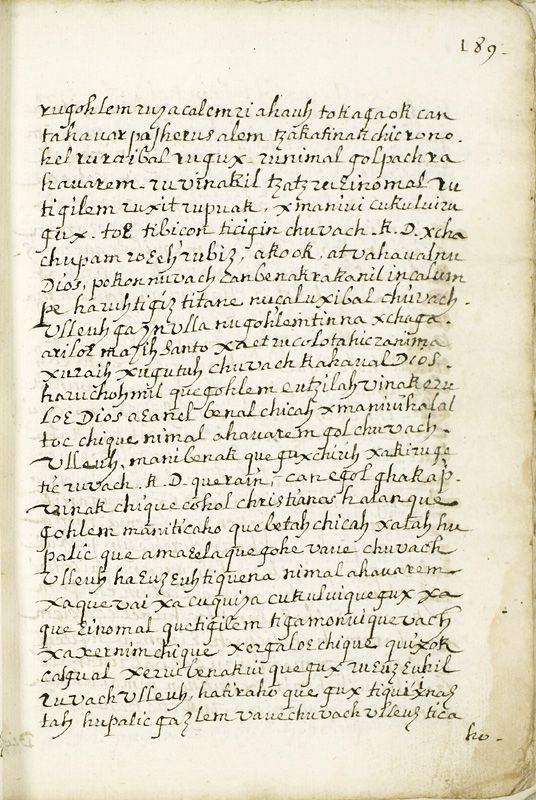 189-
rugohlem ruyacalem ri ahauh tokagaok can
tahauar pa Jherusalem tzakatinak chic rono.
hel ruraibal rugux. runimal golpach ra
hauarem. ru vinakil tzatz ru Einomal ru
tigilem ruxit rupuak, xmanivi cukuluiru
gux. toE tibicon ticigin chuvach .K. D. xcha
chupam roEeh rubiz, akook, at vahaual nu
Dios, pokon nuvach can benak rakanil incalum
pe haruh tigiz titane, nucaluxibal chuvach.
Ulleuh ga z nulla nugohlem tinna xchaga.
ariloE maJih Santo xa et rucolotahic ranima
xuraih xugutuh chuvach kahaual Dios.
haruchohmil quegohlem eutzilah vinak eru
loE Dios aEanel benal chicah xmanivi halal
toc chique nimal ahauarem gol chuvach.
Ulleuh, mani benak quegux chirih xaki ruge
tic ruvach .K. D. querain, can egol ghakap.
vinak chique cohol christianos halan que
gohlem maniticaho quebetah chicah xatah hu
palic que amaEela quegohe vave chuvach
Ulleuh haEuzEuh tiquena nimal ahauarem
xaquevai xacuquiya cukuluiquegux xa
que Einomal quetigilem tigamoniiquevach
xaxernimchique xergaloEchique quixok
casgual xeruc benakui quegux ruEuzEuhil
ruvach Ulleuh, hatiraho que gux tiquixnas
tah hupalic gazlem vave chuvach Ulleus tica
ho.